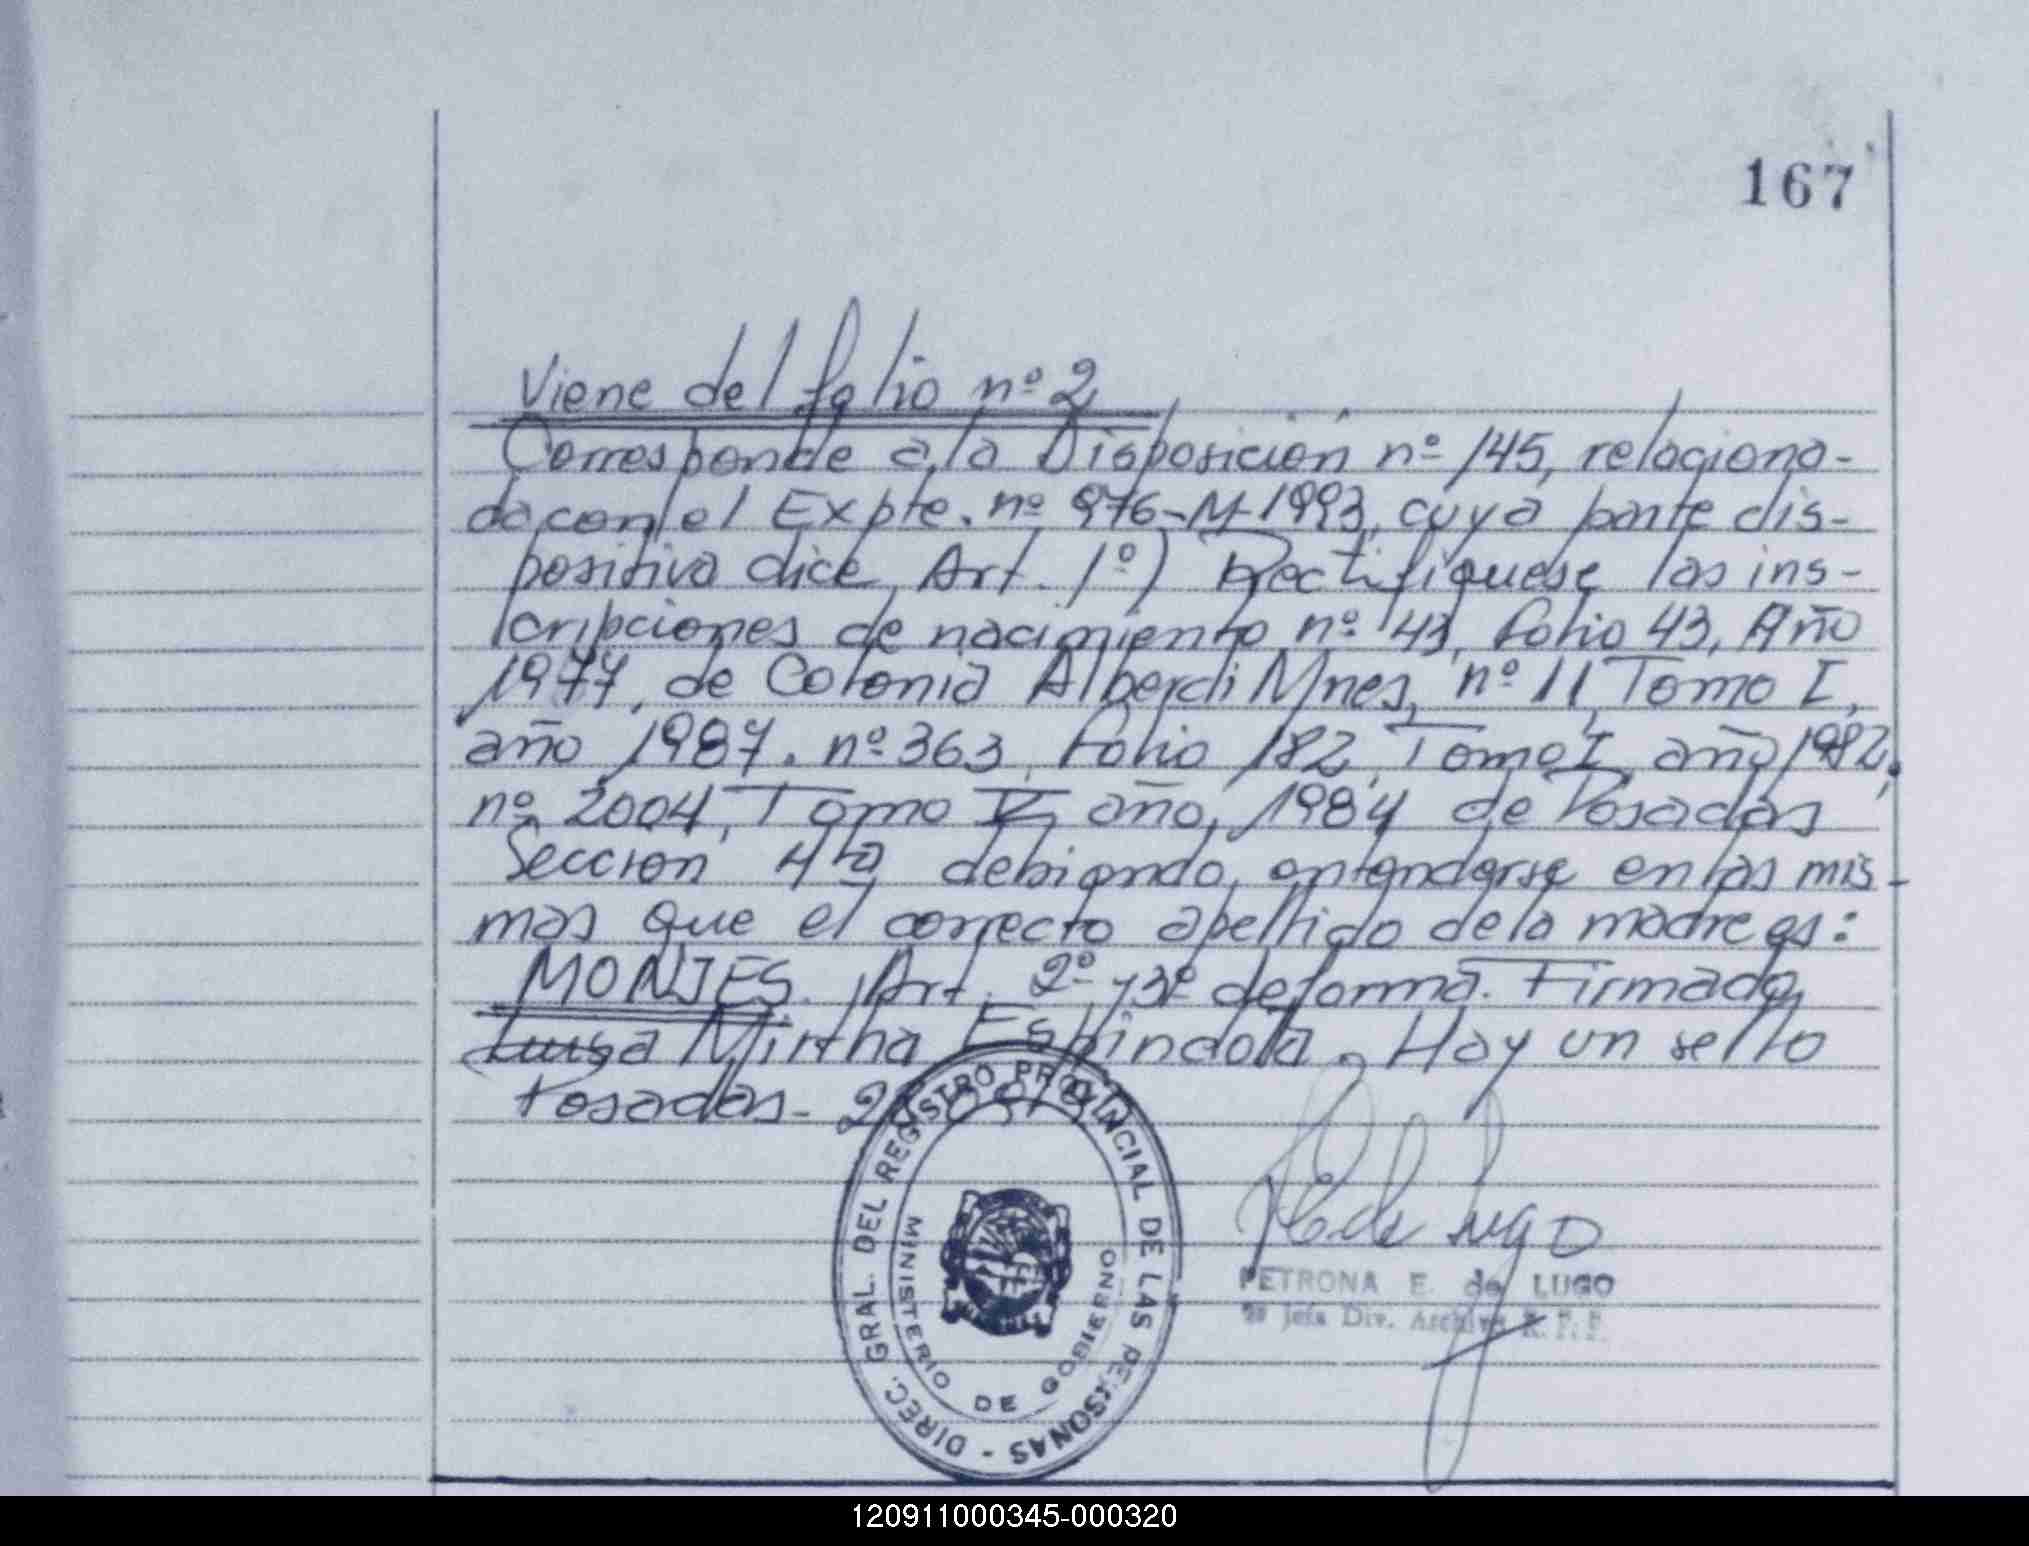 167
Viene del folio nº 2
Corresponde a la Disposición nº 145, relaciona-
da con el Expte. nº 976-M-1993, cuya parte dis-
positiva dice, Art. 1º) Rectifíquese las ins-
cripciones de nacimiento nº 43, folio 43, Año
1977, de Colonia Alberdi Mnes, nº 11, Tomo I,
año 1987. nº 363, folio 182, Tomo I, año 1982,
nº 2004, Tomo V, año, 1984 de Posadas
Sección 4ta debiendo, entenderse en las mis-
mas que el correcto apellido de la madre es:
MONJES. Art. 2º y 3º de forma. Firmado,
Luisa Mirtha Espindola. Hay un sello
Posadas-
DIREC. GRAL. DEL REGISTRO PROVINCIAL DE LAS PERSONAS -
MINISTERIO DE GOBIERNO
PETRONA E. de LUGO
Jefa Div. Archivo R. P. P.
120911000345-000320